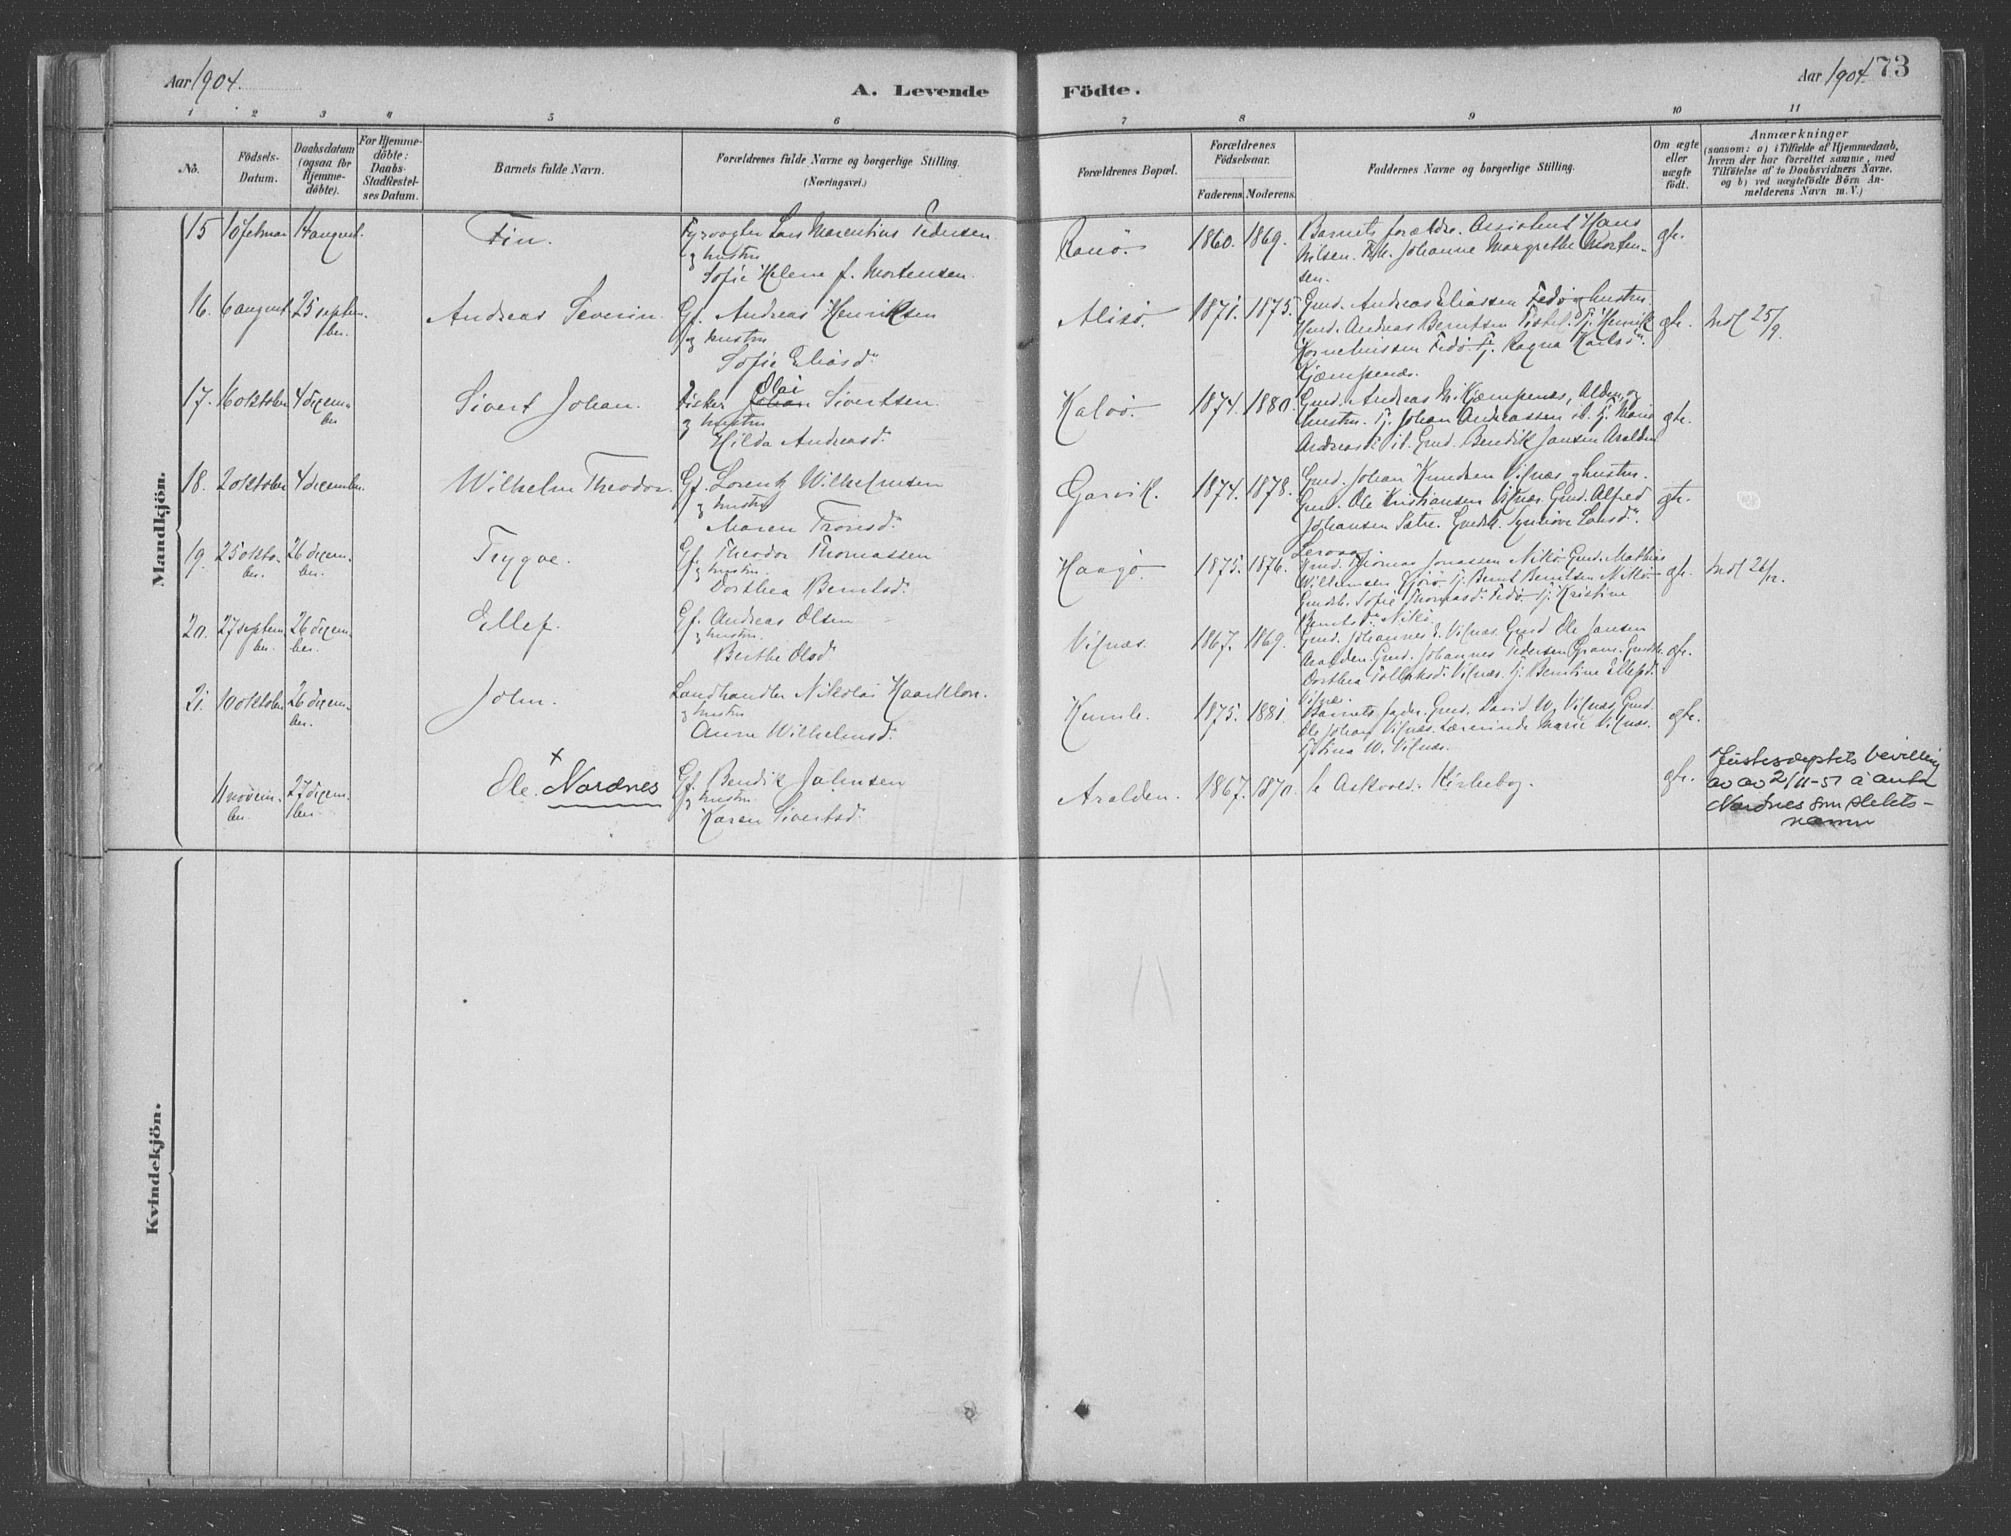 Aar 1904.
A. Levende
Födte.
Aar 1904.
73
1 2 3 4 5 6 7 8 9 10 11
No.
Födsels-
Datum.
Daabsdatum
(ogsaa för
Hjemme-
döbte).
For Hjemme-
döbte:
Daabs-
Stadfæstel-
ses Datum.
Barnets fulde Navn.
Forældrenes fulde Navne og borgerlige Stilling.
(Næringsvei.)
Forældrenes Bopæl.
Forældrenes
Födselsaar.
Faderens. Moderens.
Faddernes Navne og borgerlige Stilling.
Om ægte
eller
uægte
födt.
Anmærkninger
(saasom: a) i Tilfælde af Hjemmedaab,
hvem der har forrettet samme, med
Tilföielse af to Daabsvidners Navne,
og b) ved uægtefödte Börn An-
melderens Navn m. V.)
Mandkjön.
15 10 februar 14 august. Fin. Fyrvogter Lars Marentius Pedersen
og hustru
Sofie Helene f. Mortensen.
1860. 1869. Barnets forældre. Assistent Hans
Nilsen. Johanne Margrethe Morten-
sen.
gte.
16. 6 august. 25 septem-
ber. Andreas Severin. Gf. Andreas Henriksen
og hustru
Sofie Eliasd.
Alisö. 1871. 1875. Gmd. Andreas Eliassen Fedö og hustru.
Gmd. Andreas Berntsen Tistel. Tj. Henrik
Korneliussen Fedö. Tj. Ragna Karlsd.
Kjæmpenæs.
gte. Indl 25/9.
17. 16 oktober 4 decem-
ber Sivert Johan. Fisker Olai Sivertsen
og hustru
Hilda Andreasd.
Kalvö. 1874. 1880. Gmd. Andreas M. Kjæmpenæs, Alden, og
hustru. Tj. Johan Andreassen ib. Tj. Marie
Andreasd. ib. Gmd. Bendik Jansen Aralden
gte.
18. 2 oktober 4 december. Wilhelm Theodor. Gf. Lorentz Wilhelmsen
og hustru
Maren Tronsd.
Garvik. 1874. 1878. Gmd. Johan Knudsen Vilnæs og hustru.
Gmd. Ole Kristiansen Vilnæs. Gmd. Alfred
Johansen Sætre. Gmdsk. Synnöve Larsd.
gte.
19. 25 okto-
ber. 26 decem-
ber. Trygve. Gf. Theodor Thomassen
og hustru.
Dorthea Berntsd.
Haagö. 1875. 1876. Gmd. Thomas Jonassen Nikö. Gmd. Mathias
Willumsen Gjörö. Tj. Bernt Berntsen Nikö.
Gmdsk. Sofie Thomasd. Fedö. Tj. Kristine
Berntsd. Nikö.
gte. Indl 26/12.
20. 27 septem-
ber. 26 decem-
ber. Ellef. Gf. Andreas Olsen
og hustru.
Berthe Olsd.
Vilnæs. 1867. 1869. Gmd. Johannes J. Vilnæs. Gmd Ole Jansen
Aralden. Gmd. Johannes Pedersen Gram. Gmdsk.
Dorthea Tollaksd. Vilnæs. Tj. Berntine Ellefsd.
Vilnæs.
gte.
21. 10 oktober 26 decem-
ber. John. Landhandler Nikolai Haardklou.
og hustru
Anna Wilhelmsd.
Kumle. 1875. 1881. Barnets fader. Gmd. David W. Vilnæs. Gmd.
Ole Johan Vilnæs. Lærerinde Marie Vilnæs.
Stina W. Vilnæs.
gte.
11 novem-
ber. 27 decem-
ber. Ole. × Nordnes Gf. Bendik Johnsen
og hustru.
Karen Sivertsd.
Aralden. 1867. 1870. Se Askvold. Kirkebog.
gte. Justisdeptets bevilling
av 2/11-51 å anta
Nordnes som slekts-
namn
Kvindekjön.